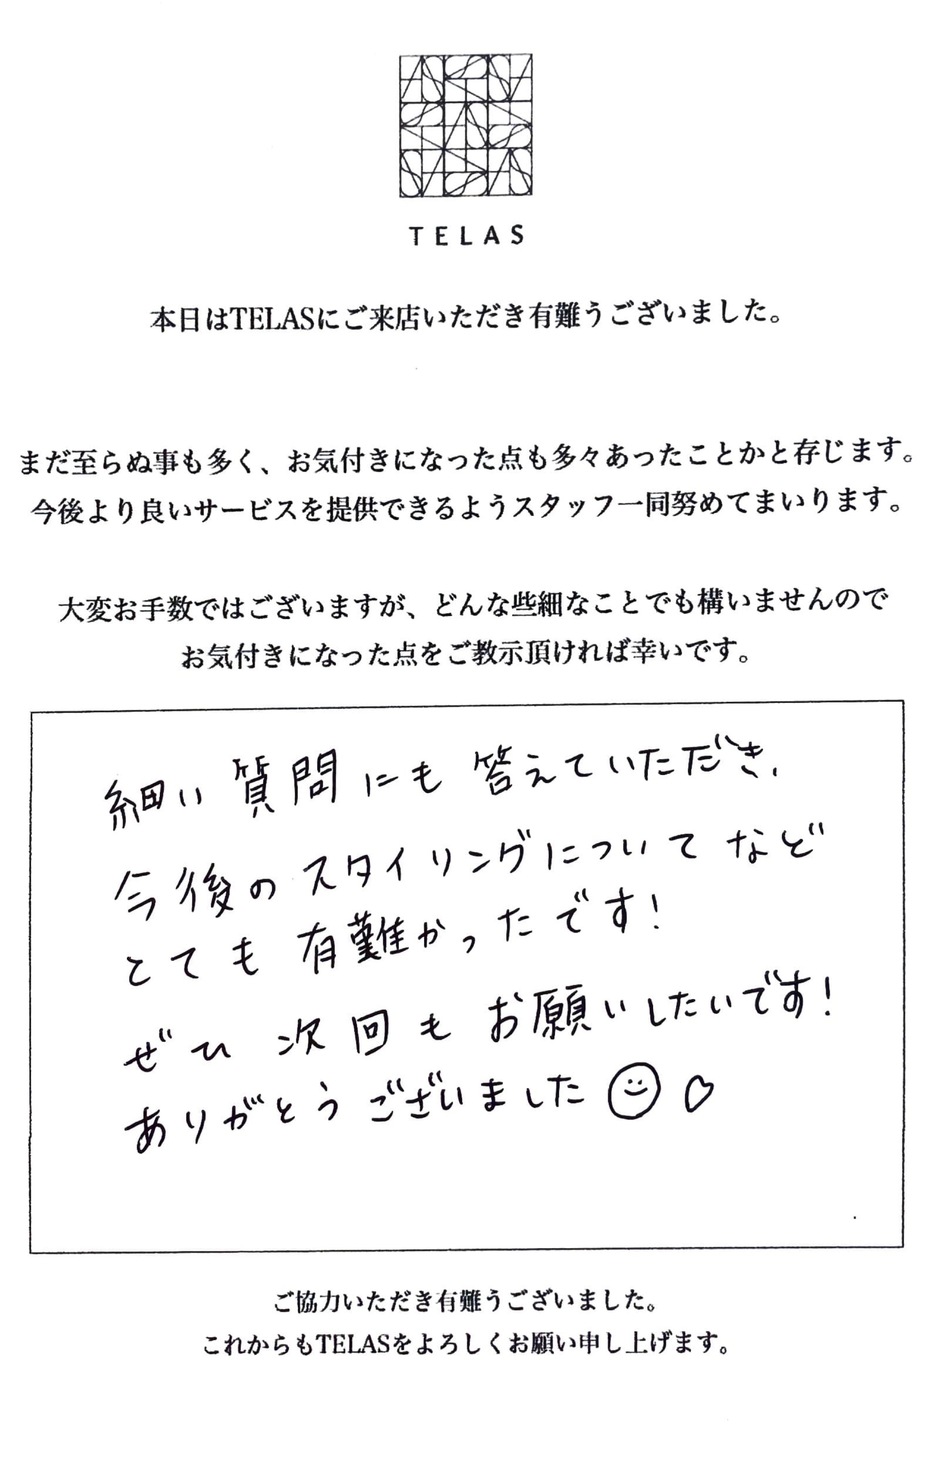 TELAS
本日はTELASにご来店いただき有難うございました。
まだ至らぬ事も多く、お気付きになった点も多々あったことかと存じます。
今後より良いサービスを提供できるようスタッフ一同努めてまいります。
大変お手数ではございますが、どんな些細なことでも構いませんので
お気付きになった点をご教示頂ければ幸いです。
細い質問にも答えていただき、
今後のスタイリングについてなど
とても有難かったです!
ぜひ次回もお願いしたいです!
ありがとうございました
ご協力いただき有難うございました。
これからもTELASをよろしくお願い申し上げます。